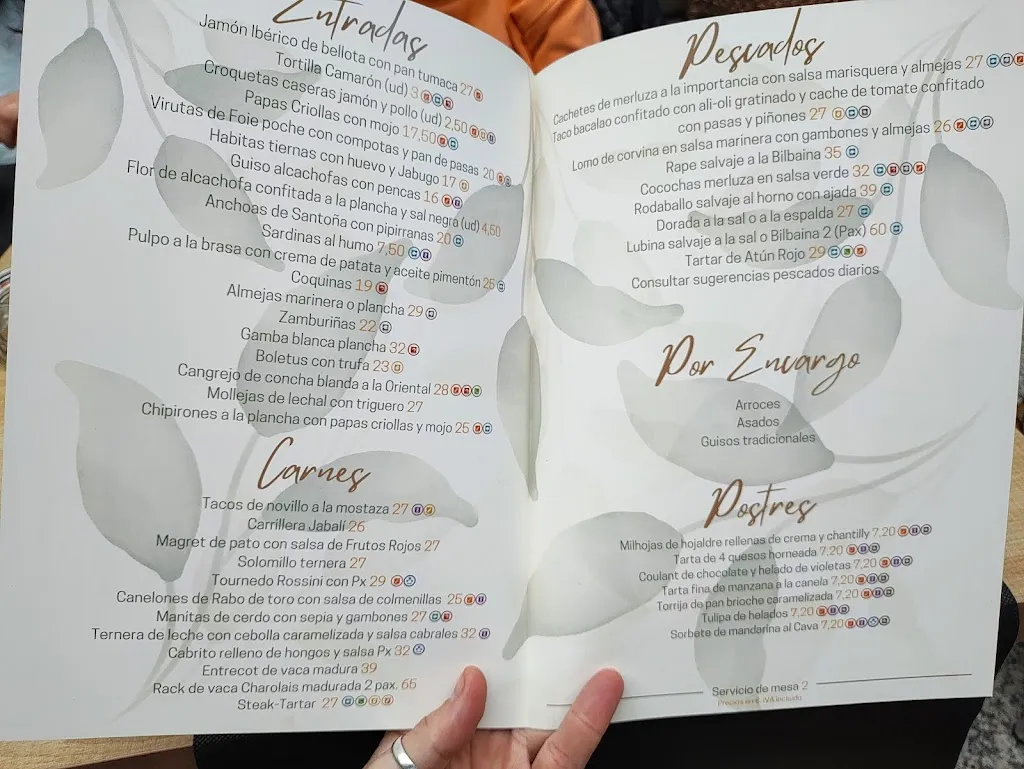 Entradas
Jamón Ibérico de bellota con pan tumaca 27
Tortilla Camarón (ud) 3
Croquetas caseras jamón y pollo (ud) 2,50
Papas Criollas con mojo 17,50
Virutas de Foie poche con compotas y pan de pasas 20
Habitas tiernas con huevo y Jabugo 17
Guiso alcachofas con pencas 16
Flor de alcachofa confitada a la plancha y sal negra (ud) 4,50
Anchoas de Santoña con pipirranas 20
Sardinas al humo 7,50
Pulpo a la brasa con crema de patata y aceite pimentón 25
Coquinas 19
Almejas marinera o plancha 29
Zamburiñas 22
Gamba blanca plancha 32
Boletus con trufa 23
Cangrejo de concha blanda a la Oriental 28
Mollejas de lechal con triguero 27
Chipirones a la plancha con papas criollas y mojo 25
Carnes
Tacos de novillo a la mostaza 27
Carrillera Jabalí 26
Magret de pato con salsa de Frutos Rojos 27
Solomillo ternera 27
Tournedo Rossini con Px 29
Canelones de Rabo de toro con salsa de colmenillas 25
Manitas de cerdo con sepia y gambones 27
Ternera de leche con cebolla caramelizada y salsa cabrales 32
Cabrito relleno de hongos y salsa Px 32
Entrecot de vaca madura 39
Rack de vaca Charolais madurada 2 pax. 65
Steak-Tartar 27
Pescados
Cachetes de merluza a la importancia con salsa marisquera y almejas 27
Taco bacalao confitado con ali-oli gratinado y cache de tomate confitado
con pasas y piñones 27
Lomo de corvina en salsa marinera con gambones y almejas 26
Rape salvaje a la Bilbaina 35
Cocochas merluza en salsa verde 32
Rodaballo salvaje al horno con ajada 39
Dorada a la sal o a la espalda 27
Lubina salvaje a la sal o Bilbaina 2 (Pax) 60
Tartar de Atún Rojo 29
Consultar sugerencias pescados diarios
Por Encargo
Arroces
Asados
Guisos tradicionales
Postres
Milhojas de hojaldre rellenas de crema y chantilly 7,20
Tarta de 4 quesos horneada 7,20
Coulant de chocolate y helado de violetas 7,20
Tarta fina de manzana a la canela 7,20
Torrija de pan brioche caramelizada 7,20
Tulipa de helados 7,20
Sorbete de mandarina al Cava 7,20
Servicio de mesa 2
Precios en € IVA incluido